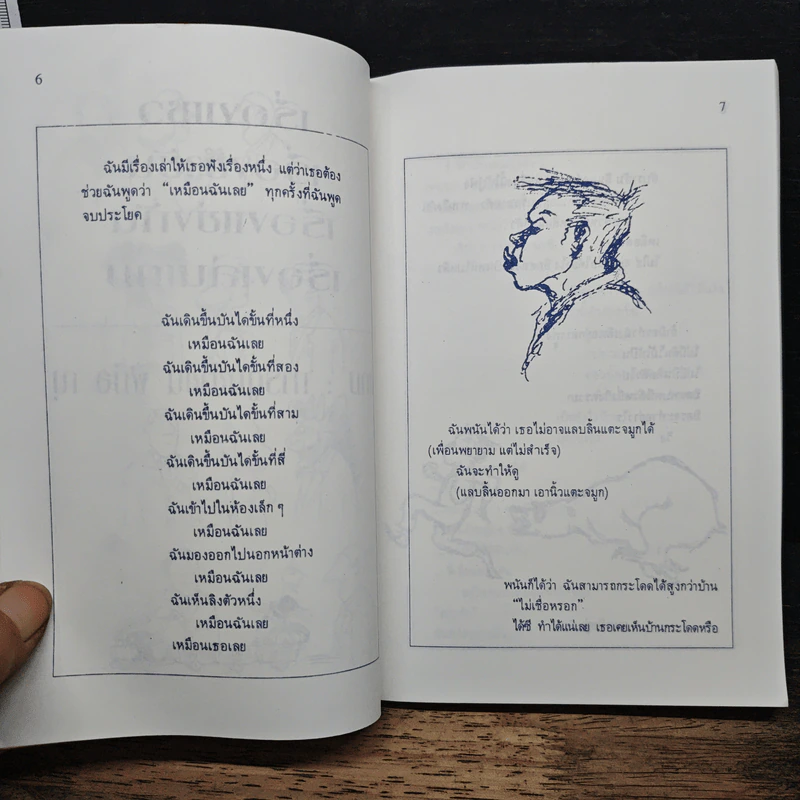 6
ฉันมีเรื่องเล่าให้เธอฟังเรื่องหนึ่ง แต่ว่าเธอต้อง
ช่วยฉันพูดว่า “เหมือนฉันเลย” ทุกครั้งที่ฉันพูด
จบประโยค
ฉันเดินขึ้นบันไดขั้นที่หนึ่ง
เหมือนฉันเลย
ฉันเดินขึ้นบันไดขั้นที่สอง
เหมือนฉันเลย
ฉันเดินขึ้นบันไดขั้นที่สาม
เหมือนฉันเลย
ฉันเดินขึ้นบันไดขั้นที่สี่
เหมือนฉันเลย
ฉันเข้าไปในห้องเล็ก ๆ
เหมือนฉันเลย
ฉันมองออกไปนอกหน้าต่าง
เหมือนฉันเลย
ฉันเห็นลิงตัวหนึ่ง
เหมือนฉันเลย
เหมือนเธอเลย
7
ฉันพนันได้ว่า เธอไม่อาจแลบลิ้นแตะจมูกได้
(เพื่อนพยายาม แต่ไม่สำเร็จ)
ฉันจะทำให้ดู
(แลบลิ้นออกมา เอานิ้วแตะจมูก)
พนันก็ได้ว่า ฉันสามารถกระโดดได้สูงกว่าบ้าน
“ไม่เชื่อหรอก”
ได้ซี ทำได้แน่เลย เธอเคยเห็นบ้านกระโดดหรือ